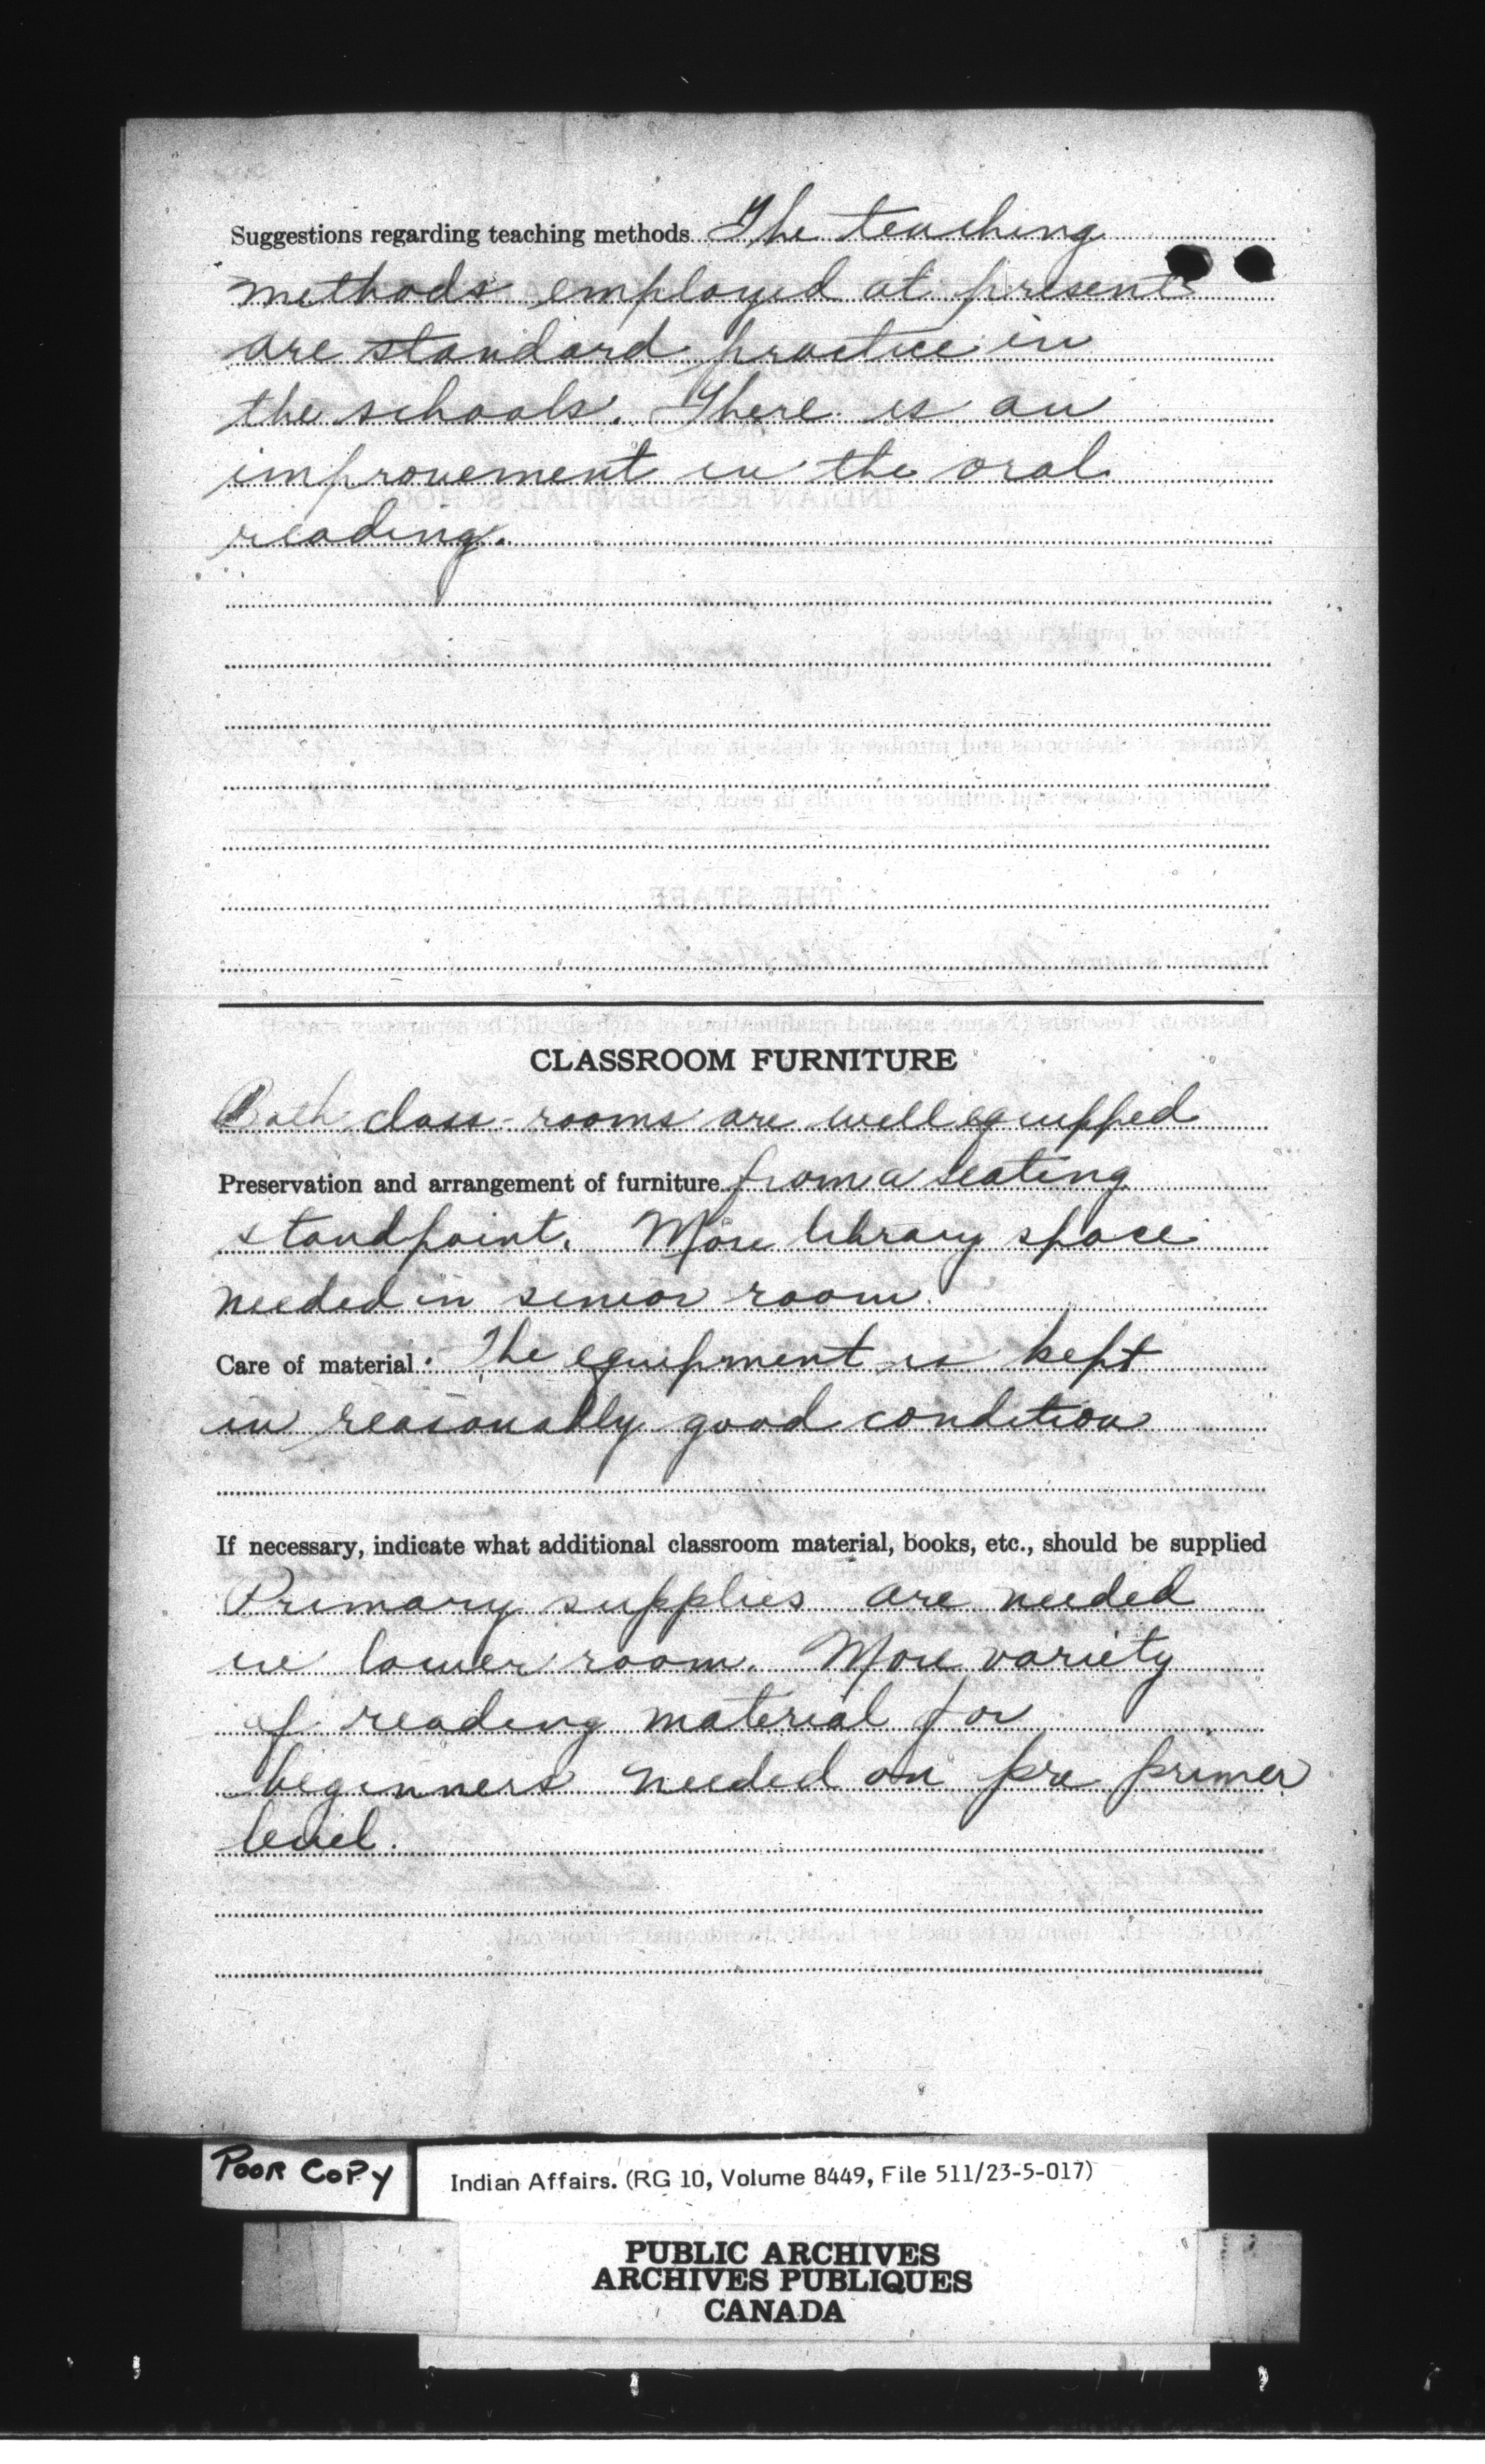 Suggestions regarding teaching methods The teaching
methods employed at present
are standard practice in
the schools. There is an
improvement in the oral
reading.
CLASSROOM FURNITURE
Both class-rooms are well equipped
Preservation and arrangement of furniture from a seating
standpoint. More library space
needed in senior room.
Care of material. The equipment is kept
in reasonably good condition
If necessary, indicate what additional classroom material, books, etc., should be supplied
Primary supplies are needed
in lower room. More variety
of reading material for
beginners needed on pre primer
level.
POOR COPY
Indian Affairs. (RG 10, Volume 8449, File 511/23-5-017)
PUBLIC ARCHIVES
ARCHIVES PUBLIQUES
CANADA